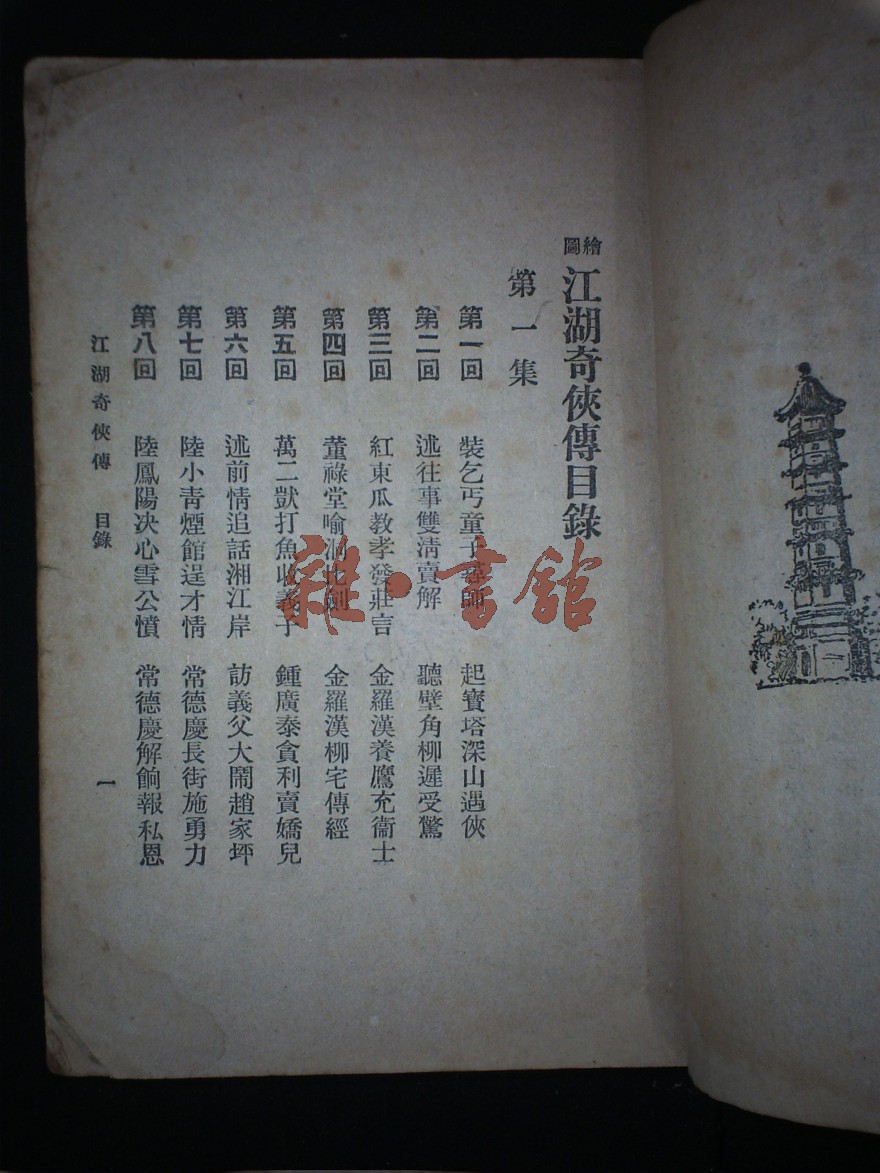 繪圖
江湖奇俠傳目錄
第一集
第一回 裝乞丐童子尋師 起寶塔深山遇俠
第二回 述往事雙清賣解 聽壁角柳遲受驚
第三回 紅東瓜教孝發莊言 金羅漢養鷹充衞士
第四回 董祿堂喻洞比劍 金羅漢柳宅傳經
第五回 萬二獃打魚收義子 鍾廣泰貪利賣嬌兒
第六回 述前情追話湘江岸 訪義父大鬧趙家坪
第七回 陸小青煙館逞才情 常德慶長街施勇力
第八回 陸鳳陽决心雪公憤 常德慶解餉報私恩
江湖奇俠傳 目錄 一
雜·書館